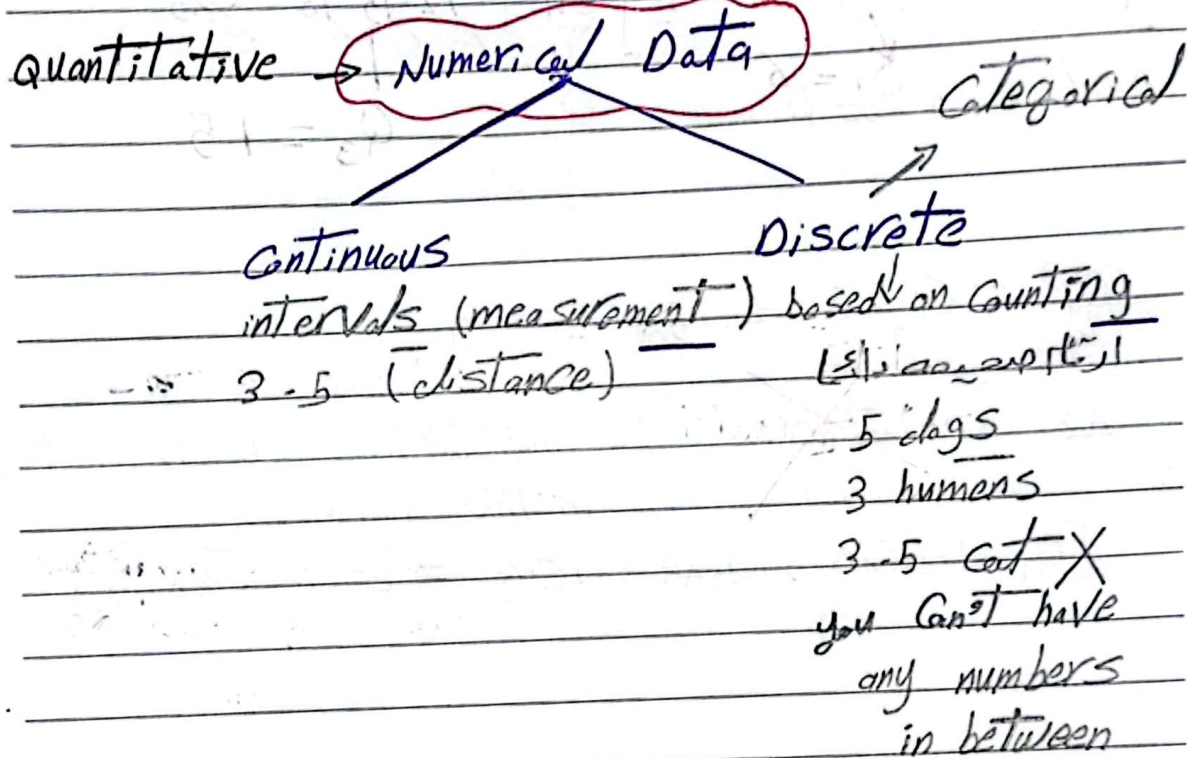 Quantitative → Numerical Data
Categorical
Continuous
intervals (measurement)
3.5 (distance)
Discrete
based on Counting
ارقام صحيحه دائما
5 dogs
3 humens
3.5 Cat X
you Can't have
any numbers
in between